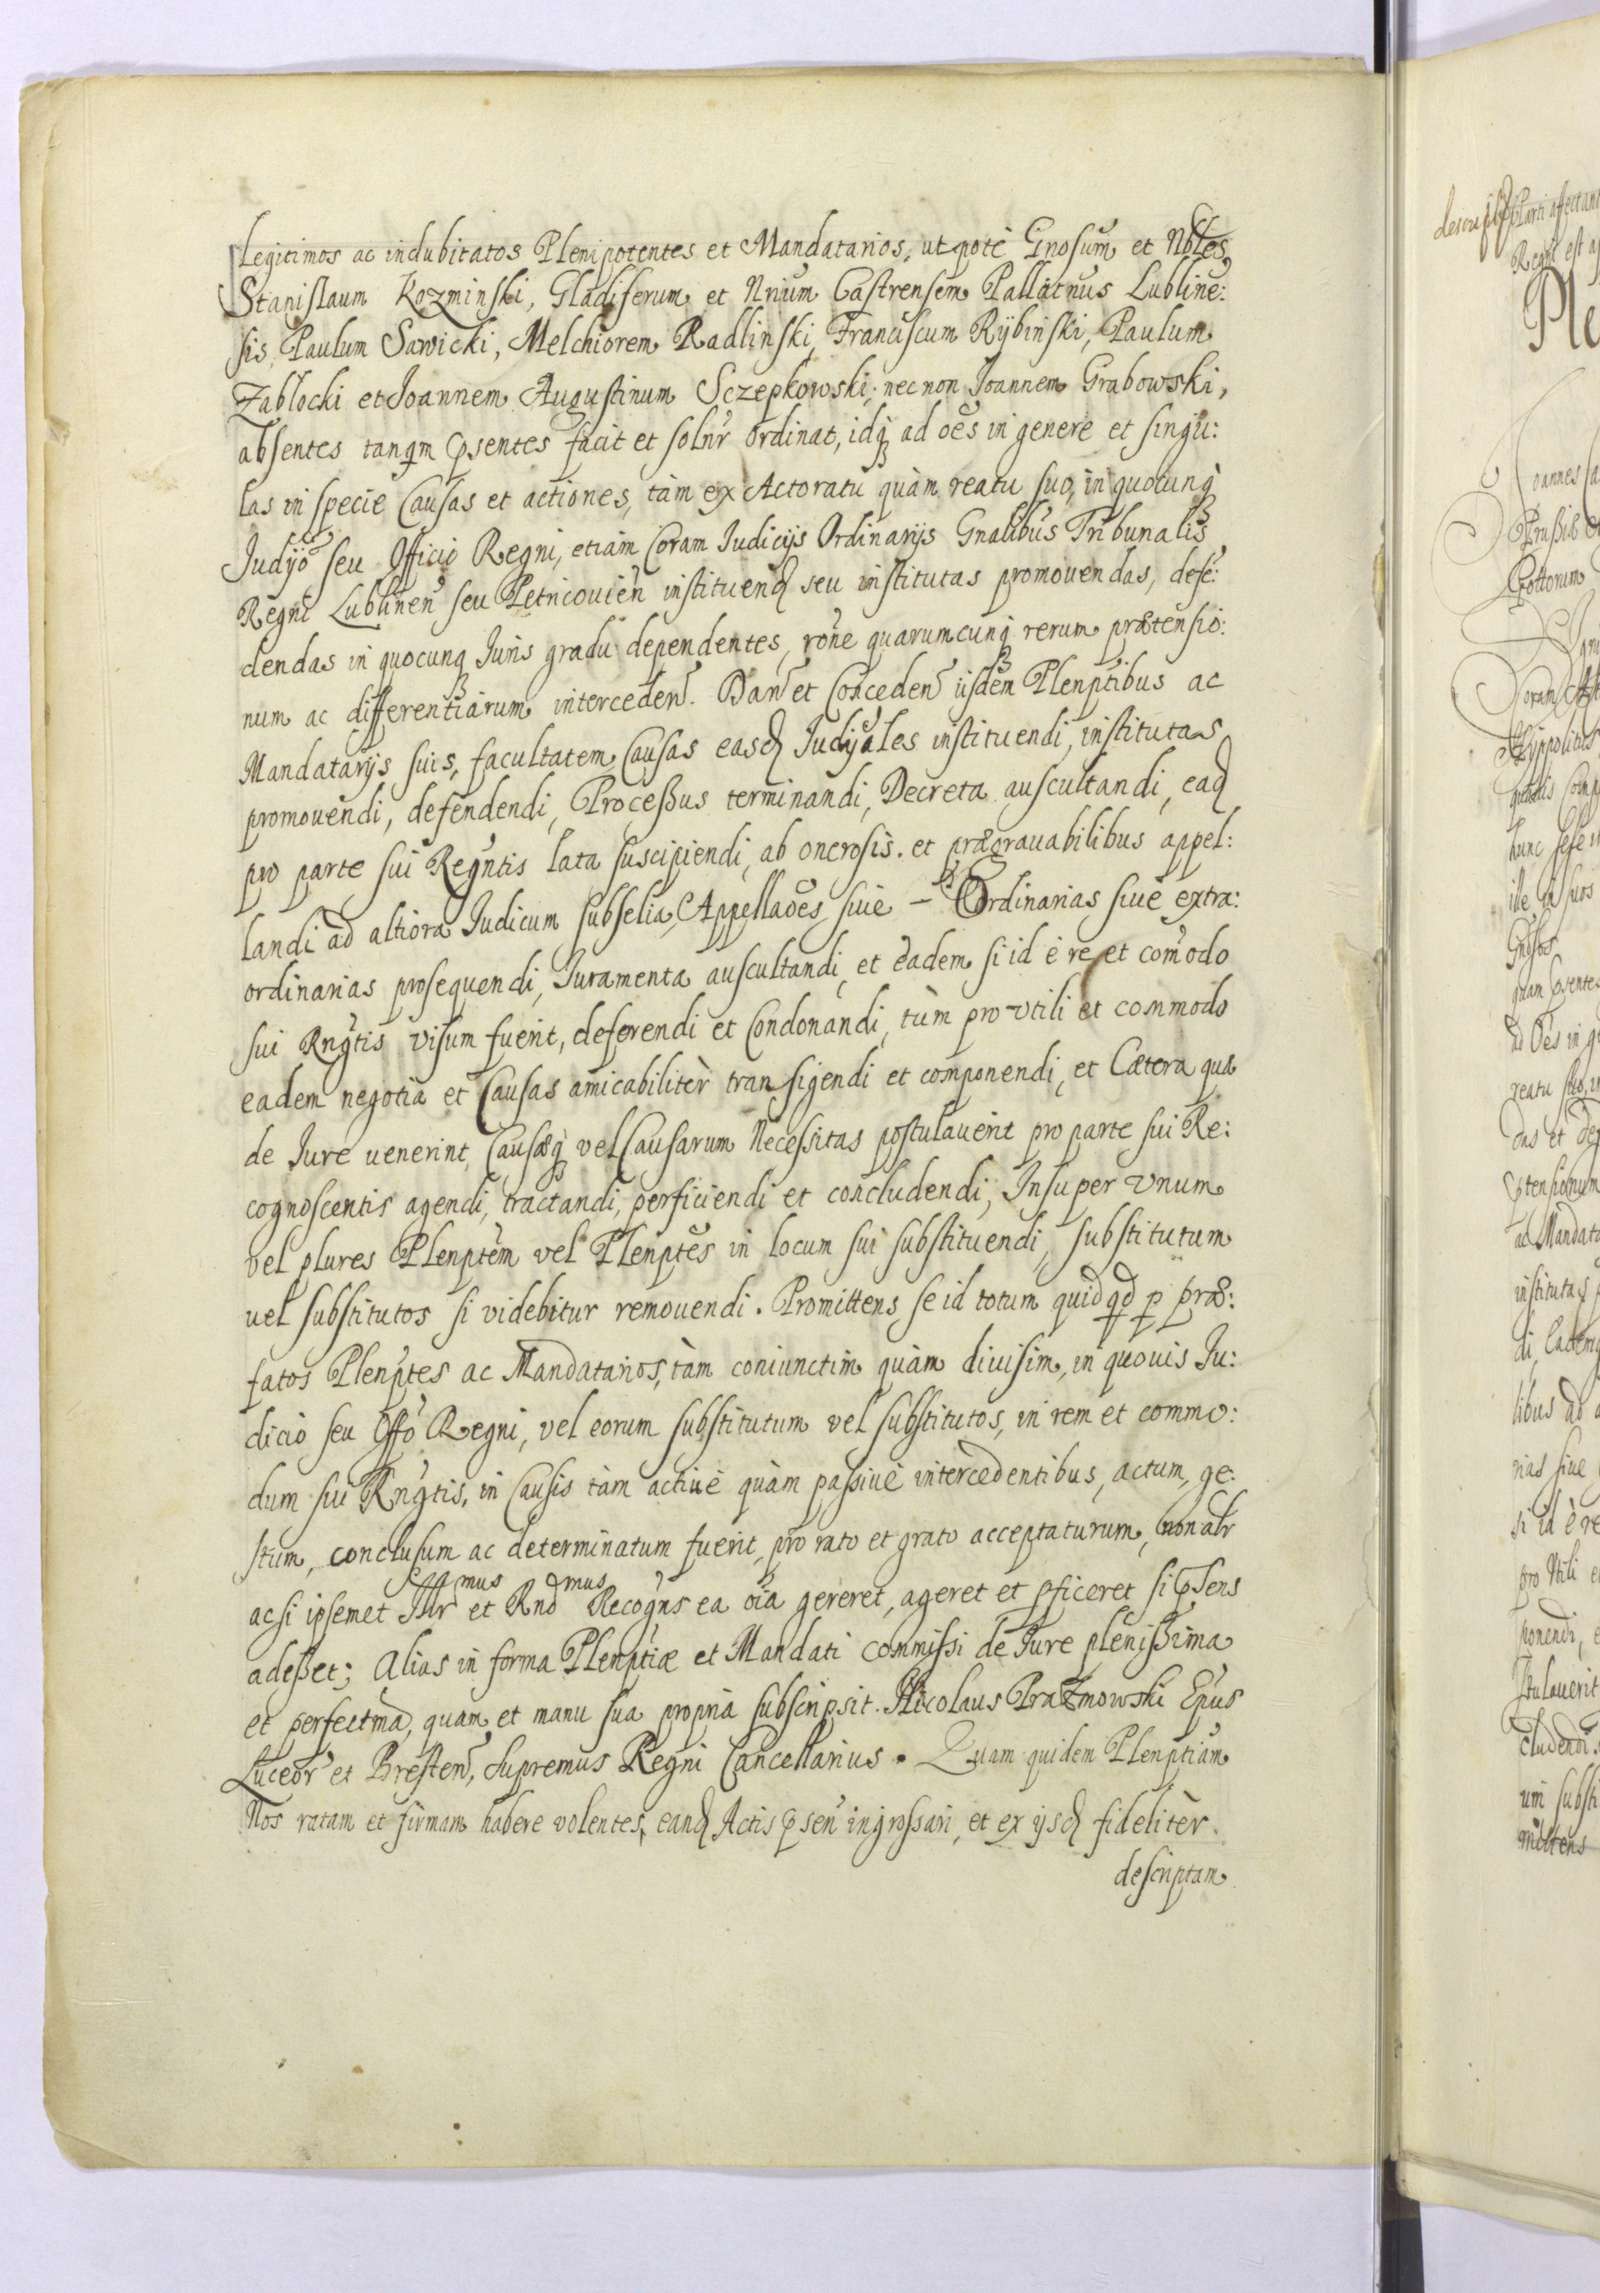 Legitimos ac indubitatos Plenipotentes et Mandatarios, utpote Gnosum et Nbles
Stanislaum Kozminski, Gladiferum et Nrium Castrensem Pallatnus Lubline:
sis, Paulum Sawicki, Melchiorem Radlinski, Franciscum Rÿbinski, Paulum
Zablocki et Joannem Augustinum Sczepkowski; nec non Joannem Grabowski,
absentes tanqm psentes facit et solnr ordinat, idq ad oes in genere et singu:
las in specie Causas et actiones, tàm ex Actoratu quàm reatu suo, in quocunq
Judyo seu Officio Regni, etiam Coram Iudicijs Ordinarijs Gnalibus Tribunalis
Regni Lublinen seu Petricovien instituend seu institutas promouendas, defe:
dendas in quocunq Juris gradu dependentes, rone quarumcunq rerum prætensio:
num ac differentiarum interceden. Dan et Conceden iisdem Plenptibus ac
Mandatarijs suis, facultatem Causas easd Judyales instituendi, institutas
promouendi, defendendi, Processus terminandi, Decreta auscultandi, ead
pro parte sui Regntis lata suscipiendi, ab onerosis. et prægrauabilibus appel:
landi ad altiora Iudicum subselia, Appellaoes, siue – Ordinarias siue extra:
ordinarias prosequendi, Iuramenta auscultandi, et eadem si id è re et comodo
sui Rngtis visum fuerit, deferendi et Condonandi, tùm pro vtili et commodo
eadem negotia et Causas amicabilitèr transigendi et componendi, et Cætera quæ
de Jure uenerint, Causæq vel Causarum Necessitas postulauerit pro parte sui Re:
cognoscentis agendi, tractandi, perficiendi et concludendi, Insuper vnum
vel plures Plenptem vel Plenptes in locum sui substituendi, substitutum
uel substitutos si videbitur remouendi. Promittens se id totum quidqd p præ:
fatos Plenptes ac Mandatarios, tàm coniunctim quàm diuisim, in quouis Iu:
dicio seu Offo Regni, vel eorum substitutum vel substitutos, in rem et commo:
dum sui Rngtis, in Causis tàm actiuè quàm passiuè intercedentibus, actum, ge:
stum, conclusum ac determinatum fuerit, pro rato et grato acceptaturum, non alr
acsi ipsemet Illr mus et Rnd mus Recogns ea oia gereret, ageret et pficeret si psens
adesset; Alias in forma Plenptiæ et Mandati commissi de Jure plenissima
et perfectma, quam et manu sua propria subscripsit. Nicolaus Prazmowski Epus
Luceor et Bresten, Supremus Regni Cancellarius. Quam quidem Plenptiam
Nos ratam et firmam habere volentes, eand Actis psen ingrossari, et ex ijsd fidelitèr
descriptam
Parti affectan
Regni est
Ple
oannes
Hyppolitus
hunc sese
ille
Gnosos
ad Oes in
reatu suo
das et
ptensionum
ac Mandata
institutas
libus ad
rias siue
si id è re
pro Vtili
ponendi,
stulauerit
cludendi
um substi
mittens